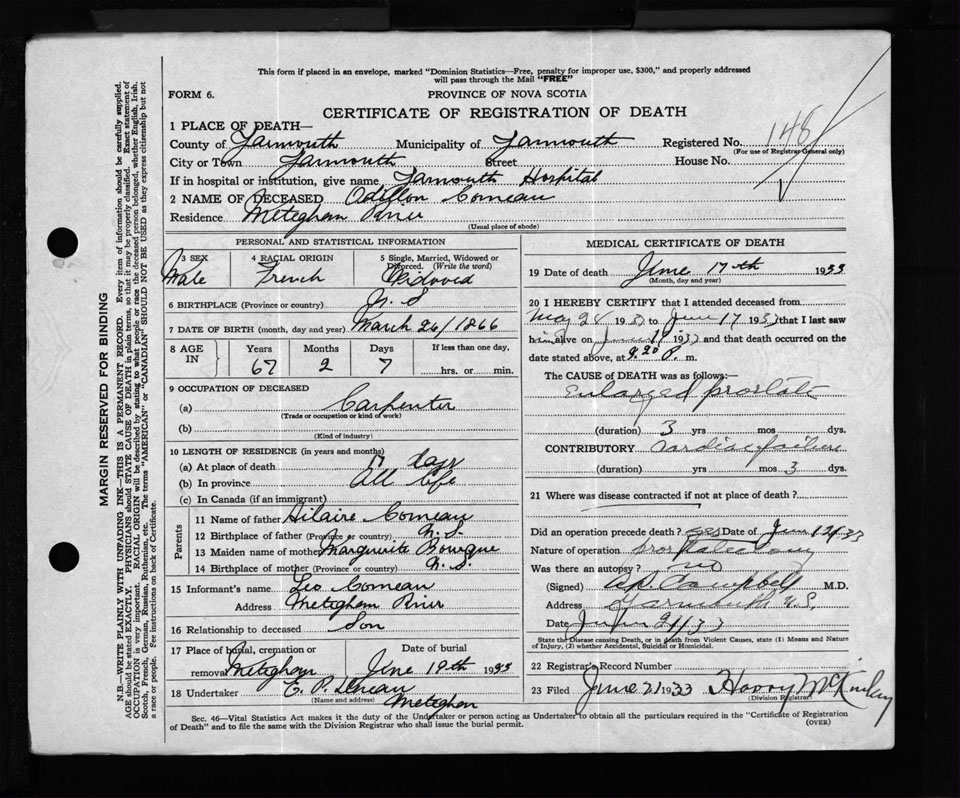 This form if placed in an envelope, marked "Dominion Statistics—Free, penalty for improper use, $300," and properly addressed
will pass through the Mail "FREE"
FORM 6.
PROVINCE OF NOVA SCOTIA
CERTIFICATE OF REGISTRATION OF DEATH
1 PLACE OF DEATH—
County of Yarmouth Municipality of Yarmouth Registered No. 148
(For use of Registrar General only)
City or Town Yarmouth Street House No.
If in hospital or institution, give name Yarmouth Hospital
2 NAME OF DECEASED Odillon Comeau
Residence Meteghan River
(Usual place of abode)
PERSONAL AND STATISTICAL INFORMATION
3 SEX 4 RACIAL ORIGIN 5 Single, Married, Widowed or Divorced. (Write the word)
Male French Widowed
6 BIRTHPLACE (Province or country) N.S
7 DATE OF BIRTH (month, day and year) March 26/1866
8 AGE IN Years Months Days If less than one day,
67 2 7 hrs. or min.
9 OCCUPATION OF DECEASED
(a) Carpenter
(Trade or occupation or kind of work)
(b)
(Kind of industry)
10 LENGTH OF RESIDENCE (in years and months)
(a) At place of death days
(b) In province All life
(c) In Canada (if an immigrant)
Parents
11 Name of father Hilaire Comeau
12 Birthplace of father (Province or country) N.S.
13 Maiden name of mother Marguerite Bourque
14 Birthplace of mother (Province or country) N.S.
15 Informant's name Leo Comeau
Address Meteghan River
16 Relationship to deceased Son
17 Place of burial, cremation or removal Meteghan Date of burial June 19th 1933
18 Undertaker E. P.
(Name and address) Meteghan
MEDICAL CERTIFICATE OF DEATH
19 Date of death June 17th 1933
(Month, day and year)
20 I HEREBY CERTIFY that I attended deceased from
May 24 1933 to June 17 1933 that I last saw
him alive on June 17 1933 and that death occurred on the
date stated above, at 9.20 P. m.
The CAUSE OF DEATH was as follows:
Enlarged prostate
(duration) 3 yrs mos dys.
CONTRIBUTORY Cardiac failure
(duration) yrs mos 3 dys.
21 Where was disease contracted if not at place of death?
Did an operation precede death? yes Date of June 12/33
Nature of operation prostatectomy
Was there an autopsy? no
(Signed) Campbell M.D.
Address Yarmouth N.S.
Date June 21/33
State the Disease causing Death, or in death from Violent Causes, state (1) Means and Nature
of Injury, (2) whether Accidental, Suicidal or Homicidal.
22 Registrar's Record Number
23 Filed June 21 1933 Harry McKinlay
(Division Registrar)
Sec. 46—Vital Statistics Act makes it the duty of the Undertaker or person acting as Undertaker to obtain all the particulars required in the "Certificate of Registration
of Death" and to file the same with the Division Registrar who shall issue the burial permit.
(OVER)
MARGIN RESERVED FOR BINDING
N.B.—WRITE PLAINLY WITH UNFADING INK—THIS IS A PERMANENT RECORD. Every item of information should be carefully supplied.
AGE should be stated EXACTLY. PHYSICIANS should STATE CAUSE OF DEATH in plain terms, so that it may be properly classified. Exact statement of
OCCUPATION is very important. RACIAL ORIGIN will be described by stating to what people or race the deceased person belonged, whether English, Irish,
Scotch, French, German, Russian, Ruthenian, etc. The terms "AMERICAN" or "CANADIAN" SHOULD NOT BE USED as they express citizenship but not
a race or people. See instructions on back of Certificate.